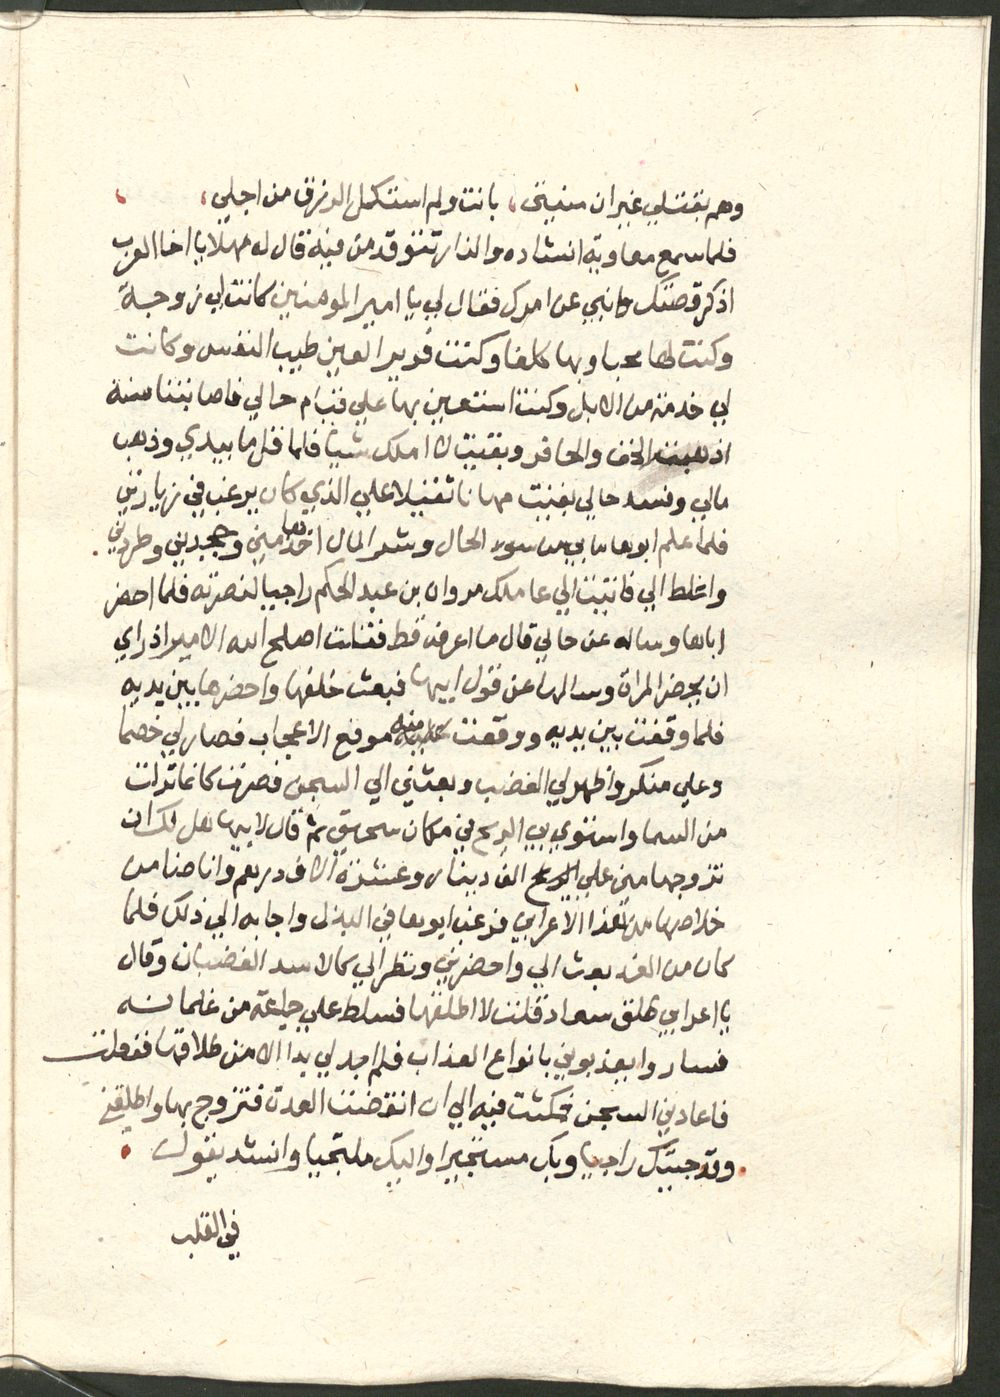 وهم بقتلي غير ان منيتي، باتت ولم استكمل الرزق من اجلي،
فلما سمع معاوية انشاده والنار تتوقد من فيه قال له مهلا يا اخا العرب
اذكر قصتك وانبي عن امرك فقال لي يا امير المومنين كانت لي زوجة
وكنت لها محبا وبها كلفا وكنت قرير العين طيب النفس وكانت
لي خدمة من الابل وكنت استعين بها علي قيام حالي فاصابتنا سنة
اذهبت الخف والحافر وبقيت لا املك شيا فلما قل ما بيدي وذهب
مالي وفسد حالي بقيت مهانا ثقيلا علي الذي كان يرغب في زيارتي
فلما علم ابوها ما بي من سوء الحال وشر المال اخذها مني وجحدني وطردني
واغلط الي فاتيت الي عاملك مروان بن عبد الحكم راجيا لنصرته فلما احضر
اباها وساله عن حالي قال ما اعرفه قط فقلت اصلح الله الامير اذ راي
ان يحضر المراة وسالها عن قول ابيها فبعث خلفها واحضرها بين يديه
فلما وقفت بين يديه ووقعت منه موقع الاعجاب فصار لي خصما
وعلي منكر واظهر لي الغضب وبعثني الي السجن فصرت كانما نزلت
من السما واستوي بي الريح في مكان سحيق ثم قال لابيها هل لك ان
تزوجها مني علي الف دينار وعشرة الاف درهم وانا ضامن
خلاصها من هذا الاعرابي فرغب ابوها في البذل واجابه الي ذلك فلما
كان من الغد بعث الي واحضرني ونظر الي كالاسد الغضبان وقال
يا اعرابي طلق سعاد فقلت لا اطلقها فسلط علي جماعة من غلمانه
فساروا يعذبوني بانواع العذاب فلم اجد لي بدا الا من طلاقها ففعلت
فاعادني السجن فمكثت فيه الي ان انقضت العدة فتزوج بها واطلقني
وقد جيتك راجيا وبك مستجيرا واليك ملتجيا وانشد يقول
في القلب